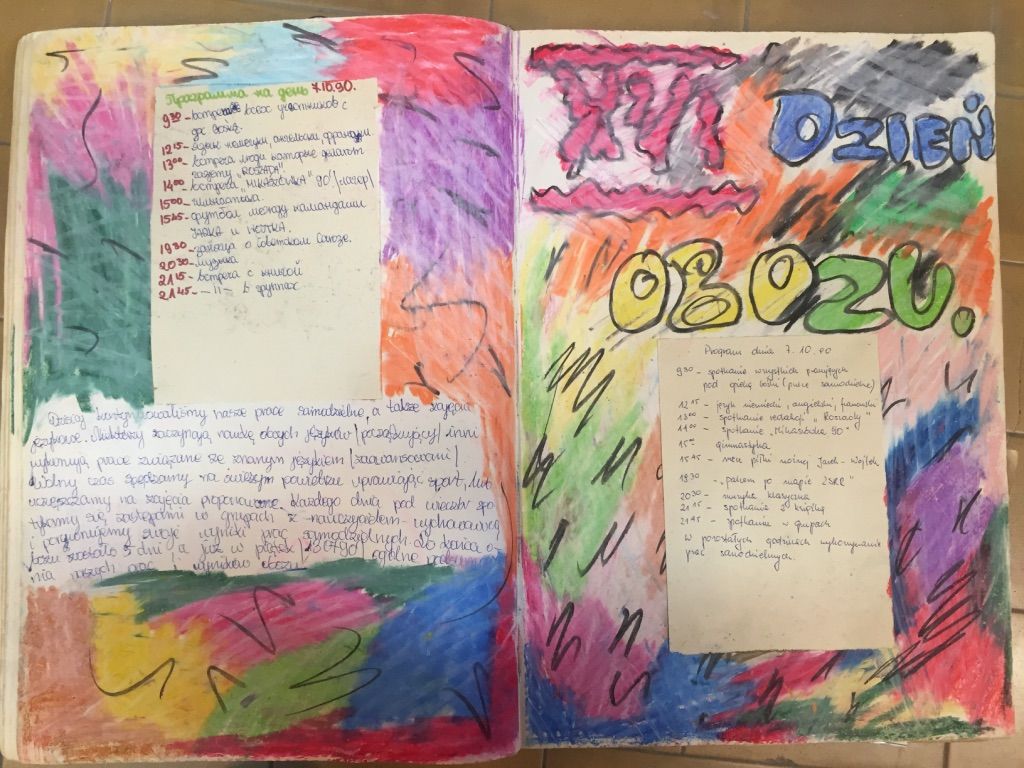 Программа на день 7.10.90.
9 30 - встреча всех участников с
12 15 - язык немецки, английски француски
13 00 - встреча люди которые делают
газету "ROSZADA"
14 00 - встреча "MIKASZÓWKA" 90'
15 00 - гимнастика.
15 45 - футбол между командами
JARKA и WOJTKA.
19 30 - о Советском Союзе.
20 30 - музыка
21 15 - встреча с книгой
21 45 - — 11 — в группах
Dzisiaj kontynuowaliśmy nasze prace samodzielne, a także zajęcia
językowe. Niektórzy zaczynają naukę obcych języków /początkujący/ inni
wykonują prace związane ze znanym językiem /zaawansowani/
Wolny czas spędzamy na świeżym powietrzu uprawiając sport, lub
uczęszczamy na zajęcia proponowane. Każdego dnia pod wieczór spo-
tykamy się w grupach z nauczycielem - wychowawcą
i porównujemy swoje wyniki prac samodzielnych. Do końca o-
bozu zostało 5 dni a już w piątek ogólne
nia naszych prac i wyników obozu.
XVI DZIEŃ
OBOZU.
Program dnia 7.10.90
9 30 - spotkanie wszystkich
pod opieką (prace samodzielne)
12 15 - język niemiecki, angielski, francuski
13 00 - spotkanie redakcji "Roszady"
14 00 - spotkanie "Mikaszówka 90"
15 00 gimnastyka
15 45 - mecz piłki nożnej Jarek - Wojtek
19 30 - "palcem po mapie ZSRR"
20 30 - muzyka klasyczna
21 15 - spotkanie z książką
21 45 - spotkanie w grupach
W pozostałych godzinach wykonywanie
prac samodzielnych.